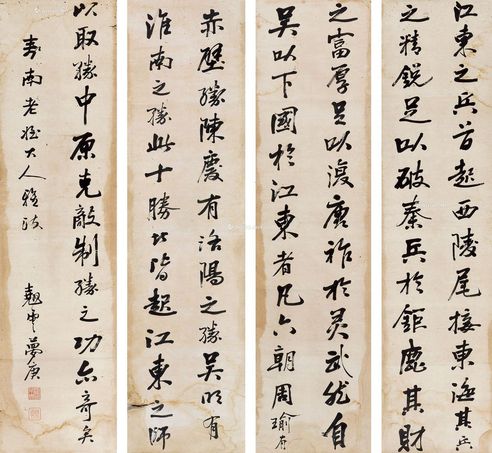 江東之兵首起西陵尾接東海其兵
之精銳足以破秦兵於鉅鹿其財
之富厚足以復唐祚於灵武然自
吴以下國於江東者凡六朝周瑜有
赤壁勝陳慶有洛陽之勝吴明有
淮南之勝此十勝比皆起江東之師
以取勝中原克敵制勝之功亦奇矣
大人雅政
夢庚